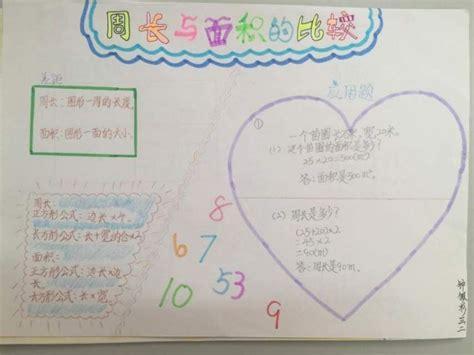 周长与面积的比较
周长:图形一周的长度。
面积:图形一面的大小。
周长:
正方形公式:边长×4。
长方形公式:长+宽的合×2
面积:
正方形公式:边长×边
长。
长方形公式:长×宽。
应用题
①
一个苗圃长25米,宽20米。
(1)这个苗圃的面积是多少?
25×20=500(m²)
答:面积是500m²。
(2)周长是多少?
(25+20)×2
=45×2
=90(m)
答:周长是90m。
8
6 7
10 53
9
三二